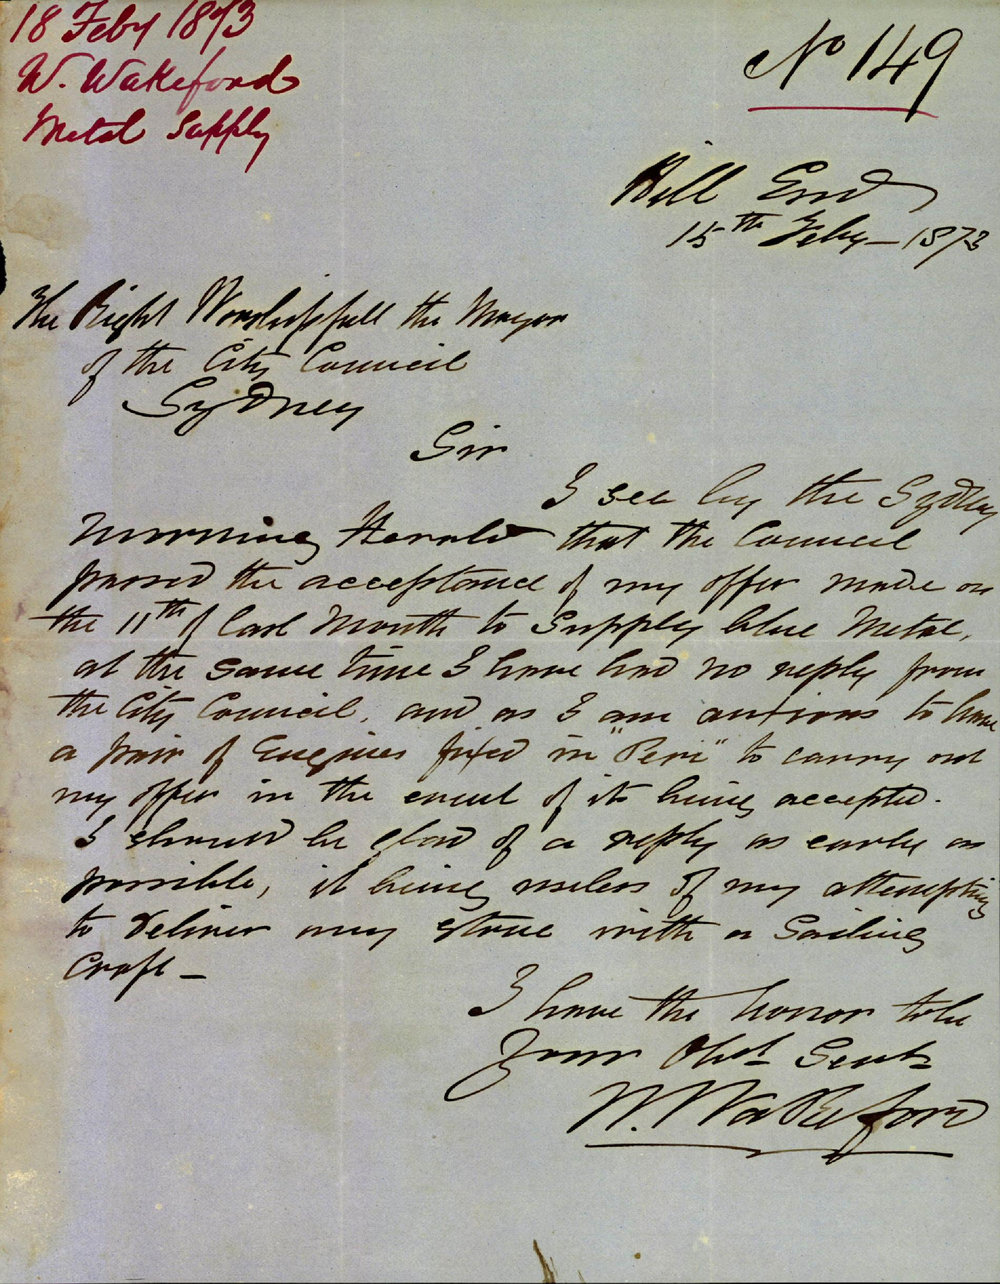 18 Feby 1873
W. Wakeford
Metal Supply
No 149
Hill End
15th Feby - 1873
The Right Worshipfull the Mayor
of the City Council
Sydney
Sir
I see by the Sydney
Morning Herald that the Council
passed the acceptance of my offer made on
the 11th of last Month to Supply blue Metal,
at the same time I have had no reply from
the City Council, and as I am anxious to have
a pair of Engines fixed in "Peri" to carry out
my offer in the event of its being accepted.
I should be glad of a reply as early as
possible, it being useless of my attempting
to deliver any stone with a Sailing
Craft -
I have the honor to be
Your Obdt Servt
W. Wakeford